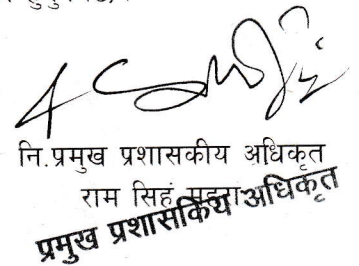 नि.प्रमुख प्रशासकीय अधिकृत
राम सिहं महरा
प्रमुख प्रशासकिय अधिकृत